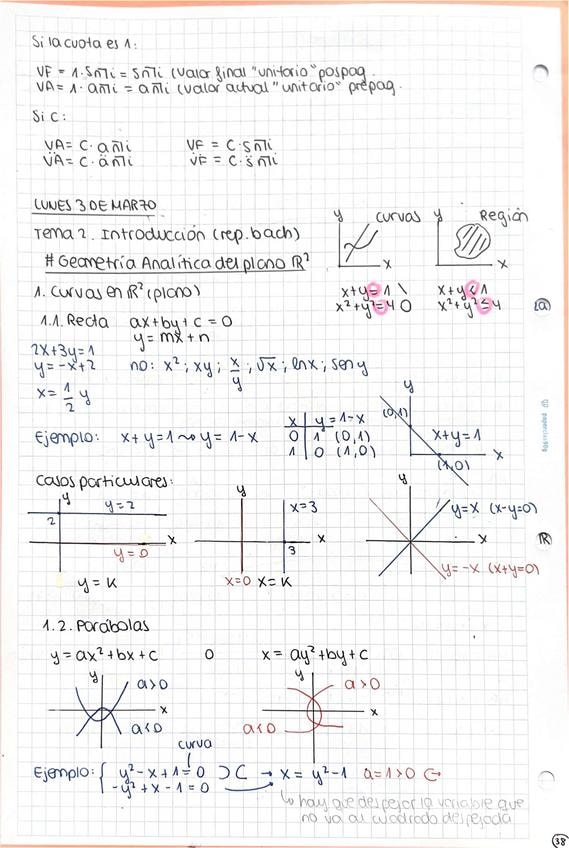 Si la cuota es 1:
VF = 1·sn̅|i = sn̅|i (Valor final "unitario" pospag.
VA = 1·an̅|i = an̅|i (valor actual "unitario" prepag.
Si C:
VA = C·an̅|i VF = C·sn̅|i
V̈A = C·än̅|i V̈F = C·s̈n̅|i
LUNES 3 DE MARZO
Tema 2. Introducción (rep. bach)
# Geometría Analítica del plano R²
y curvas x
y Región x
x+y=1 \
x²+y²=4 O
x+y≤1
x²+y²≤4
1. Curvas en R² (plano)
1.1. Recta ax+by+c=0
y=mx+n
2x+3y=1
y=-x+2
x=1/2 y
no: x²; xy; x/y; √x; lnx; seny
Ejemplo: x+y=1 ~> y=1-x
x | y=1-x
0 | 1 (0,1)
1 | 0 (1,0)
y (0,1) x+y=1 x (1,0)
Casos particulares:
y y=2 2 x y=0
y=K
y x=3 3 x
x=0 x=K
y y=x (x-y=0) x
y=-x (x+y=0)
1.2. Parábolas
y=ax²+bx+c o x=ay²+by+c
y a>0 x a<0
y a>0 x a<0
curva
Ejemplo: { y²-x+1=0 ⊃C → x=y²-1 a=1>0 ⊂→
-y²+x-1=0
↳ hay que despejar la variable que
no va al cuadrado despejada
38